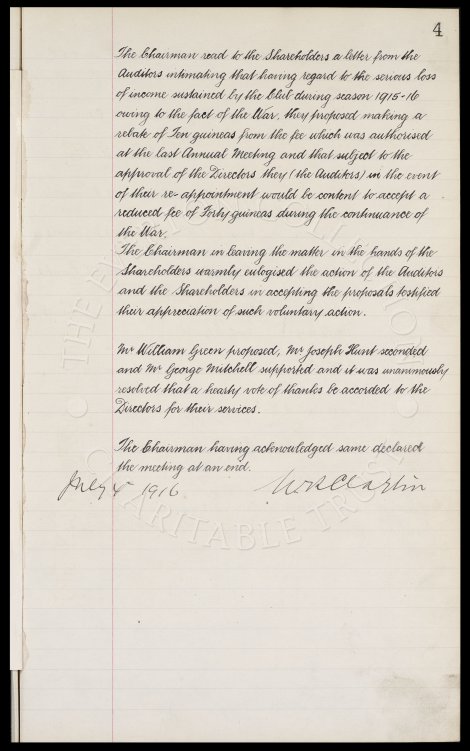 4
The Chairman read to the Shareholders a letter from the
Auditors intimating that having regard to the serious loss
of income sustained by the Club during season 1915-16
owing to the fact of the War, they proposed making a
rebate of Ten guineas from the fee which was authorised
at the last Annual Meeting and that subject to the
approval of the Directors they (the Auditors) in the event
of their re-appointment would be content to accept a
reduced fee of Forty guineas during the continuance of
the War.
The Chairman in leaving the matter in the hands of the
Shareholders warmly eulogised the action of the Auditors
and the Shareholders in accepting the proposals testified
their appreciation of such voluntary action.
Mr William Green proposed, Mr Joseph Hunt seconded
and Mr George Mitchell supported and it was unanimously
resolved that a hearty vote of thanks be accorded to the
Directors for their services.
The Chairman having acknowledged same declared
the meeting at an end.
July 4 1916 W R Clayton
THE EVERTON COLLECTION
CHARITABLE TRUST